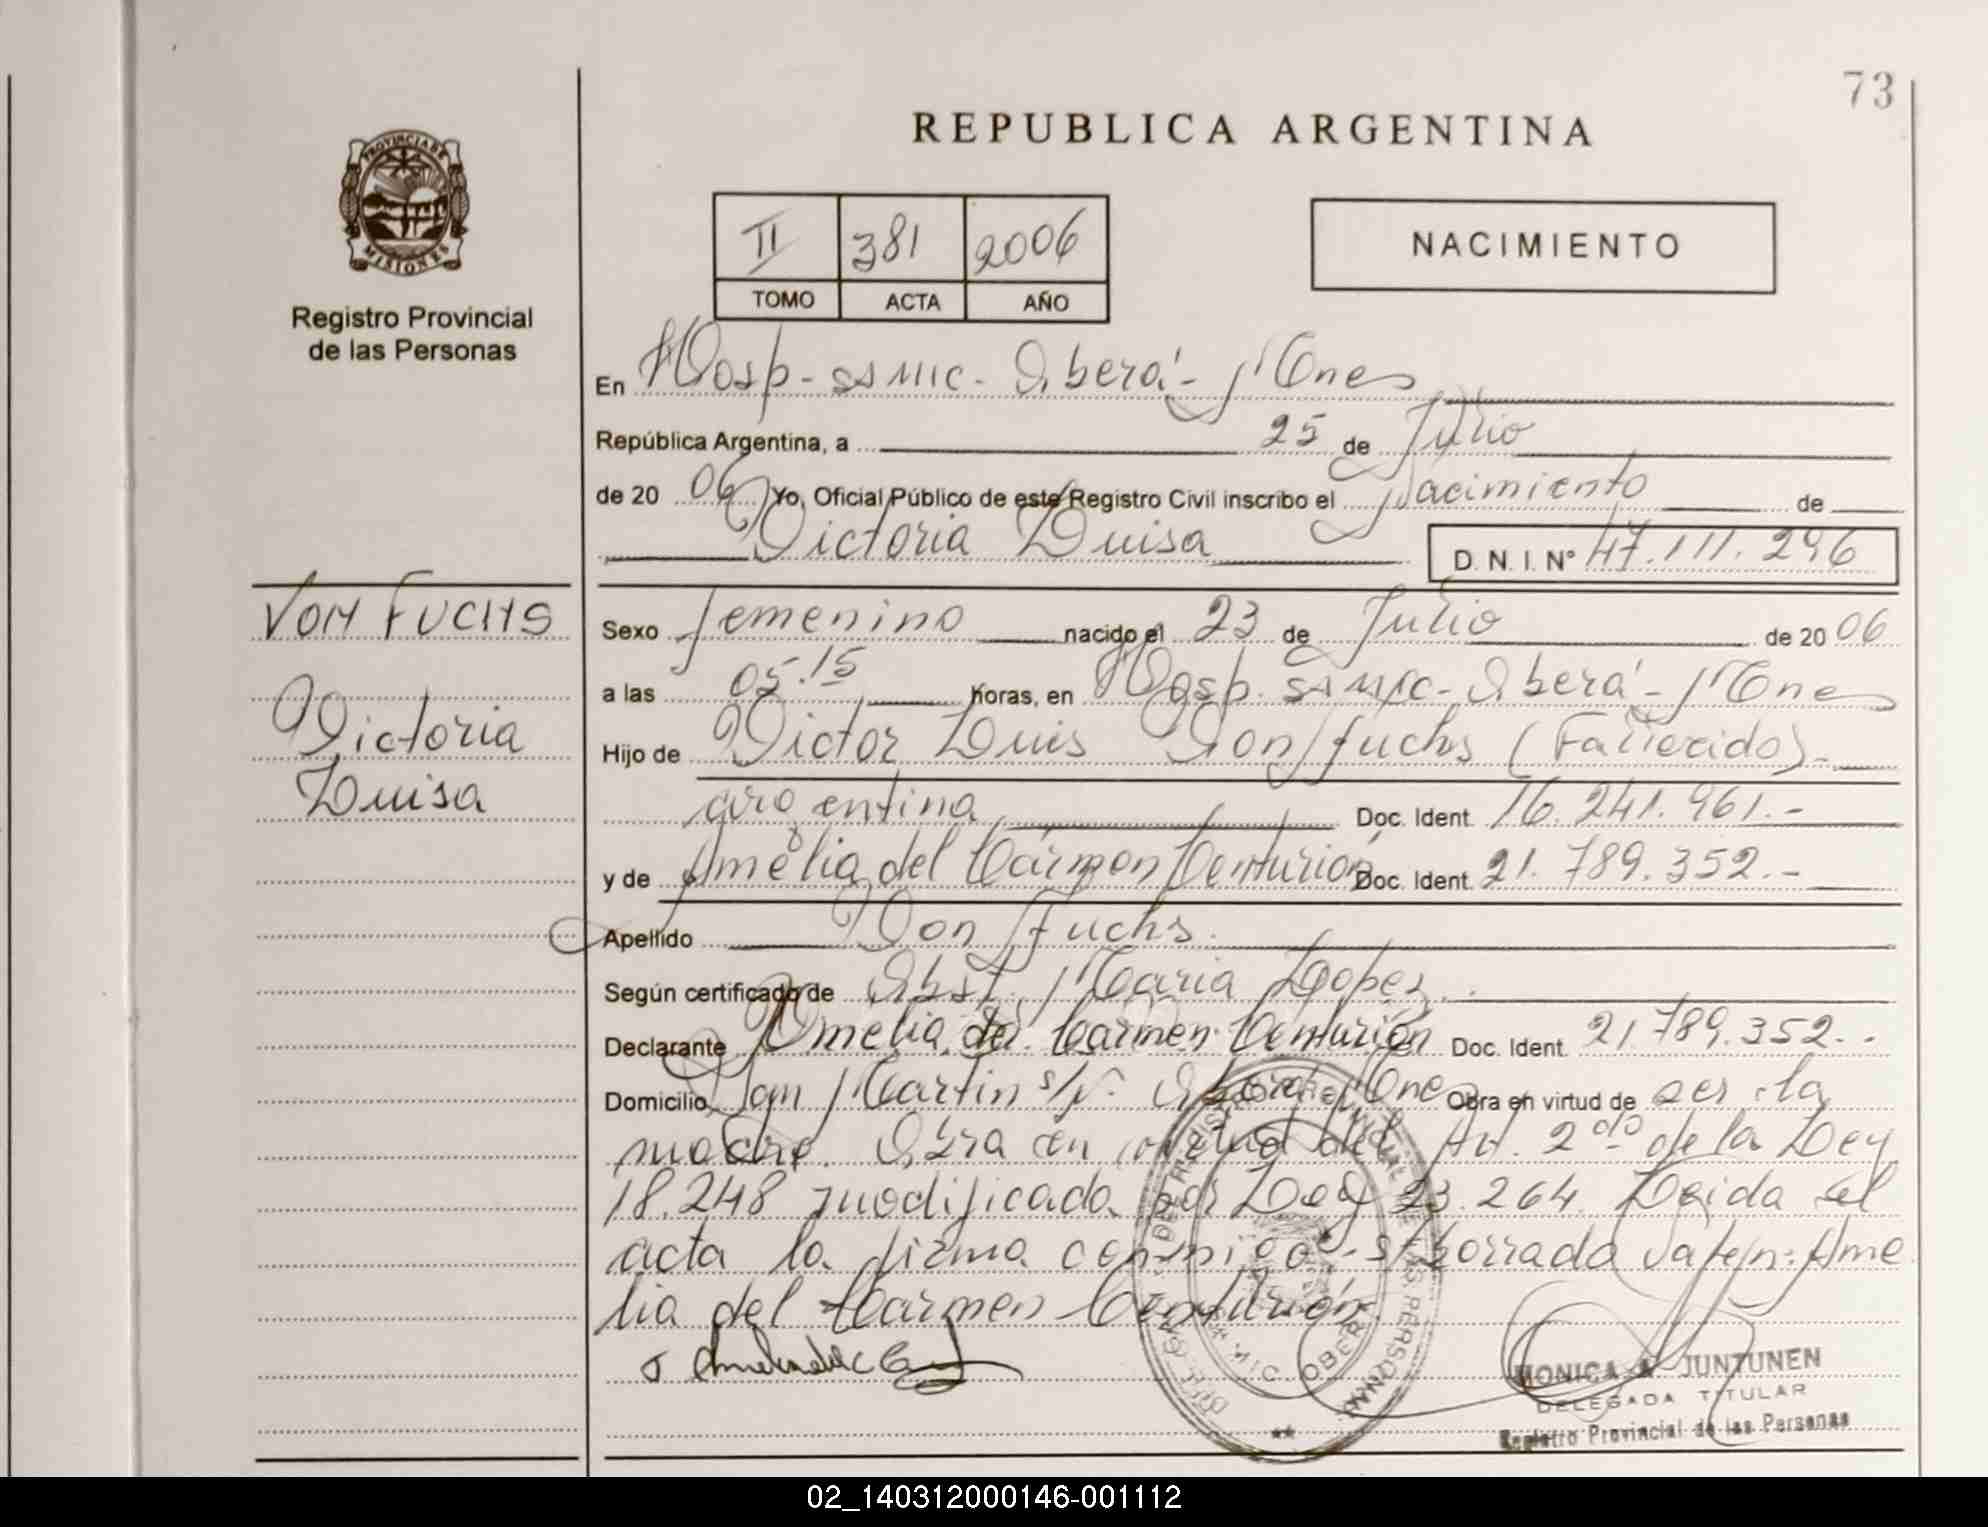 73
REPUBLICA ARGENTINA
PROVINCIA DE
MISIONES
Registro Provincial
de las Personas
II 381 2006
TOMO ACTA AÑO
NACIMIENTO
En Hosp. SAMIC - Oberá - Mnes
República Argentina, a 25 de Julio
de 20 06 Yo, Oficial Público de este Registro Civil inscribo el Nacimiento de
Victoria Luisa D. N. I. N° 47.111.296
VON FUCHS
Victoria
Luisa
Sexo femenino nacido el 23 de Julio de 20 06
a las 05.15 horas, en Hosp. SAMIC - Oberá - Mnes
Hijo de Victor Luis Von fuchs (Fallecido).-
argentina Doc. Ident. 16.241.961.-
y de Amelia del Cármen Centurión Doc. Ident. 21.789.352.-
Apellido Von Fuchs.
Según certificado de Obst. Maria Lopez.
Declarante Amelia del Carmen Centurión Doc. Ident. 21.789.352.-
Domicilio San Martin s/N. Oberá Mnes Obra en virtud de ser la
madre. Obra en virtud del Art. 2do de la Ley
18.248 modificada por Ley 23.264. Leida el
acta la firma conmigo. s/borrado Vale/n: Ame
lia del Carmen Centurión.
MONICA JUNTUNEN
DELEGADA TITULAR
Registro Provincial de las Personas
02_140312000146-001112